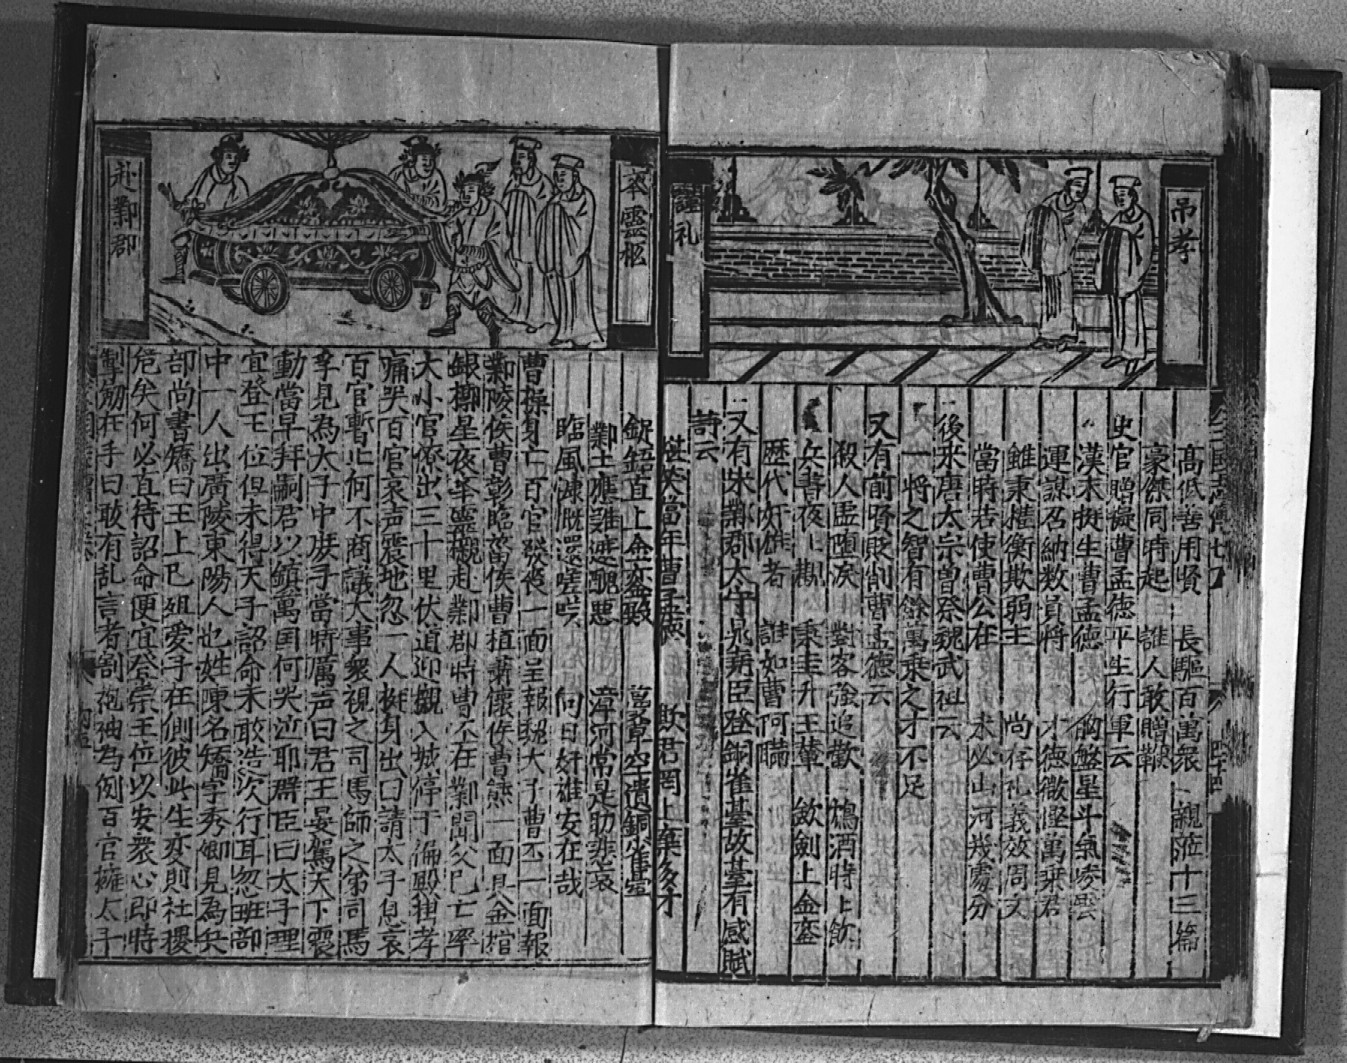 吊孝
礼
高低善用賢 長驅百萬衆 親蒞十三篇
豪傑同時起 誰人敢贈鞭
史官贈癡曹孟德平生行軍云
漢末挺生曹孟德 胸盤星斗氣凌雲
運謀召納数員將 才德徽 萬乗君
雖秉權衡欺弱主 尚存礼義效周文
當時若使曹公在 未必山河幾處分
後来唐太宗曾祭魏武祖云
一將之智有餘萬乗之才不足
又有前賢貶削曹孟德云
殺人虚堕淚 對客強追歡 酒時上飲
兵書夜上勘 秉圭升王輦 飲劍上金鑾
歴代奸雄者 誰如曹阿瞞
又有朱鄴郡太守 臣登銅雀臺故墓有感賦
詩云
堪 當年曹 欺君罔上 多才
直上金鑾殿 萬草空遺銅雀臺
鄴土應難遮醜惡 漳河常是助 哀
臨風慷慨還嗟 向日奸雄安在哉
靈柩
赴鄴郡
曹操身亡百官發喪一面呈報魏太子曹丕一面報
鄴陵侯曹彰臨菑侯曹植蕭懷侯曹熊一面具金棺
銀槨星夜举靈櫬赴鄴郡時曹丕在鄴聞父已亡率
大小官僚出三十里伏道迎櫬入城停于偏殿挂孝
痛哭百官哀声震地忽一人挺身出曰請太子息哀
百官暫止何不商議大事衆視之司馬師之弟司馬
孚見為太子中庶子當時厲声曰君王晏駕天下震
動當早拜嗣君以鎮萬国何哭泣耶群臣曰太子理
宜登王位但未得天子詔命未敢造次行耳忽班部
中一人出廣陵東陽人也姓陳名矯字秀卿見為兵
部尚書矯曰王上已殂愛子在側彼此生变則社稷
危矣何必直待詔命便宜登崇王位以安衆心即時
掣劍在手曰敢有乱言者割袍袖為例百官擁太子